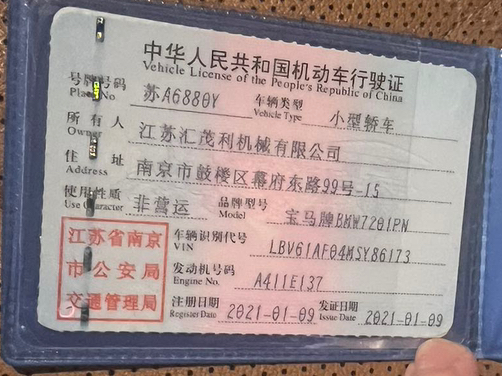 中华人民共和国机动车行驶证
Vehicle License of the People's Republic of China
号牌号码 苏A6880Y 车辆类型 小型轿车
Plate No Vehicle Type
所有人 江苏汇茂利机械有限公司
Owner
住址 南京市鼓楼区幕府东路99号-15
Address
使用性质 非营运 品牌型号 宝马牌BMW7201PN
Use Character Model
江苏省南京 车辆识别代号 LBV61AF04MSY86173
VIN
市公安局 发动机号码 A411E137
Engine No.
交通管理局 注册日期 2021-01-09 发证日期 2021-01-09
Register Date Issue Date